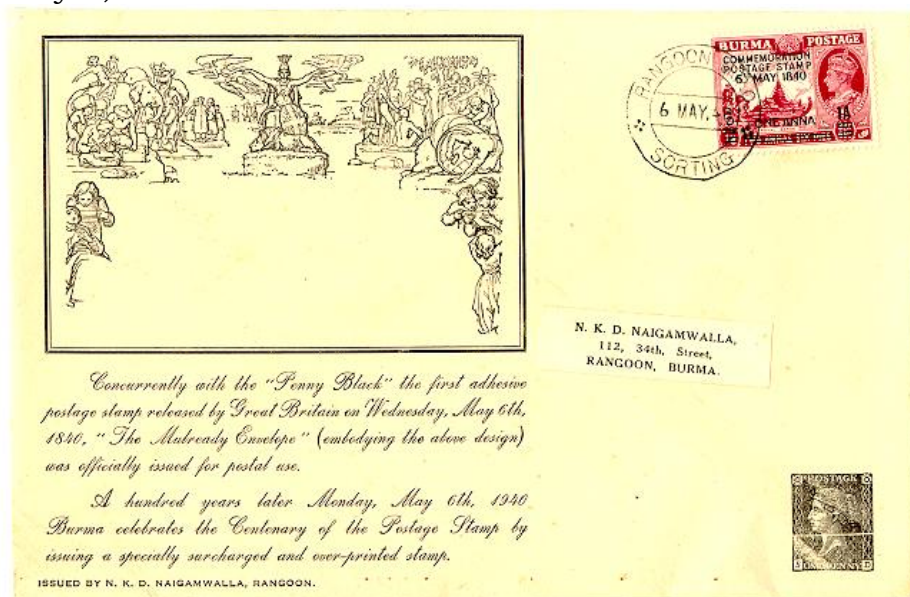 BURMA POSTAGE
COMMEMORATION
POSTAGE STAMP
6TH MAY 1840
ONE ANNA 1A
RANGOON
6 MAY
SORTING
N. K. D. NAIGAMWALLA,
112, 34th, Street,
RANGOON, BURMA.
Concurrently with the "Penny Black" the first adhesive
postage stamp released by Great Britain on Wednesday, May 6th,
1840, "The Mulready Envelope" (embodying the above design)
was officially issued for postal use.
A hundred years later Monday, May 6th, 1940
Burma celebrates the Centenary of the Postage Stamp by
issuing a specially surcharged and over-printed stamp.
ISSUED BY N. K. D. NAIGAMWALLA, RANGOON.
POSTAGE
S ONE PENNY D